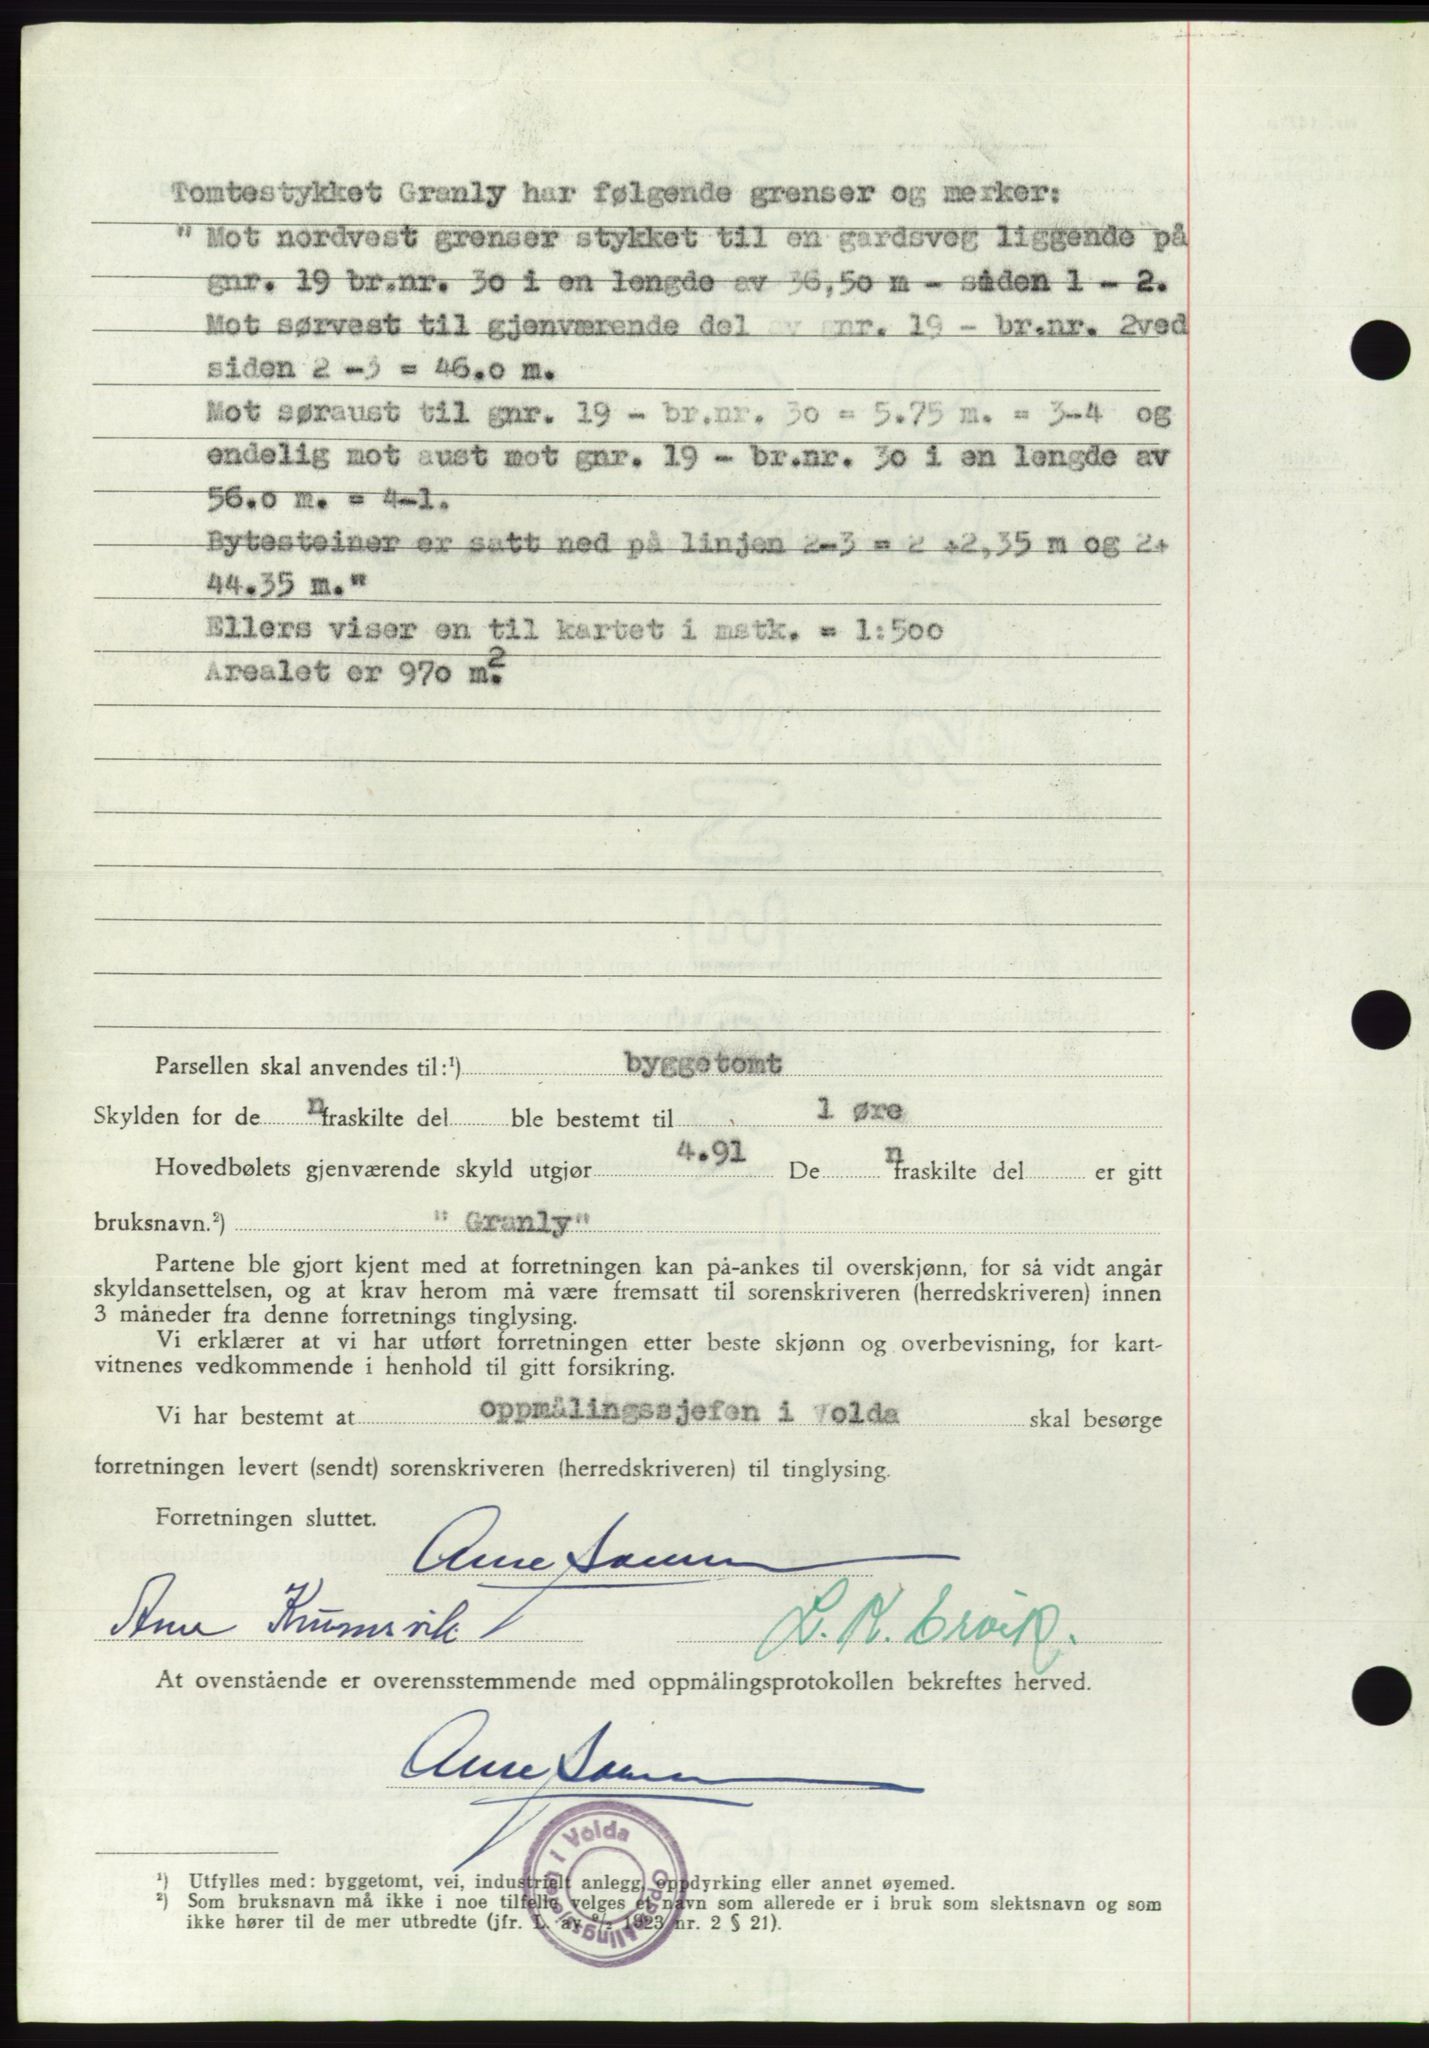 Tomtestykket Granly har følgende grenser og merker:
" Mot nordvest grenser stykket til en gardsveg liggende på
gnr. 19 br.nr. 30 i en lengde av 36,50 m - siden 1 - 2.
Mot sørvest til gjenværende del av gnr. 19 - br.nr. 2ved
siden 2 -3 = 46.0 m.
Mot søraust til gnr. 19 - br.nr. 30 = 5.75 m. = 3-4 og
endelig mot aust mot gnr. 19 - br.nr. 30 i en lengde av
56.0 m. = 4-1.
Bytesteiner er satt ned på linjen 2-3 = 2 +2,35 m og 2+
44.35 m."
Ellers viser en til kartet i mstk. = 1:500
Arealet er 970 m².
Parsellen skal anvendes til:¹) byggetomt
Skylden for de n fraskilte del ble bestemt til 1 øre
Hovedbølets gjenværende skyld utgjør 4.91 De n fraskilte del er gitt
bruksnavn.²) " Granly"
Partene ble gjort kjent med at forretningen kan på-ankes til overskjønn, for så vidt angår
skyldansettelsen, og at krav herom må være fremsatt til sorenskriveren (herredskriveren) innen
3 måneder fra denne forretnings tinglysing.
Vi erklærer at vi har utført forretningen etter beste skjønn og overbevisning, for kart-
vitnenes vedkommende i henhold til gitt forsikring.
Vi har bestemt at oppmålingssjefen i Volda skal besørge
forretningen levert (sendt) sorenskriveren (herredskriveren) til tinglysing.
Forretningen sluttet.
Arne
Arne Krumsvik L. K. Ervik.
At ovenstående er overensstemmende med oppmålingsprotokollen bekreftes herved.
Arne
Oppmålingssjefen i Volda
¹) Utfylles med: byggetomt, vei, industrielt anlegg, oppdyrking eller annet øyemed.
²) Som bruksnavn må ikke i noe tilfelle velges et navn som allerede er i bruk som slektsnavn og som
ikke hører til de mer utbredte (jfr. L. av 9/2 1923 nr. 2 § 21).